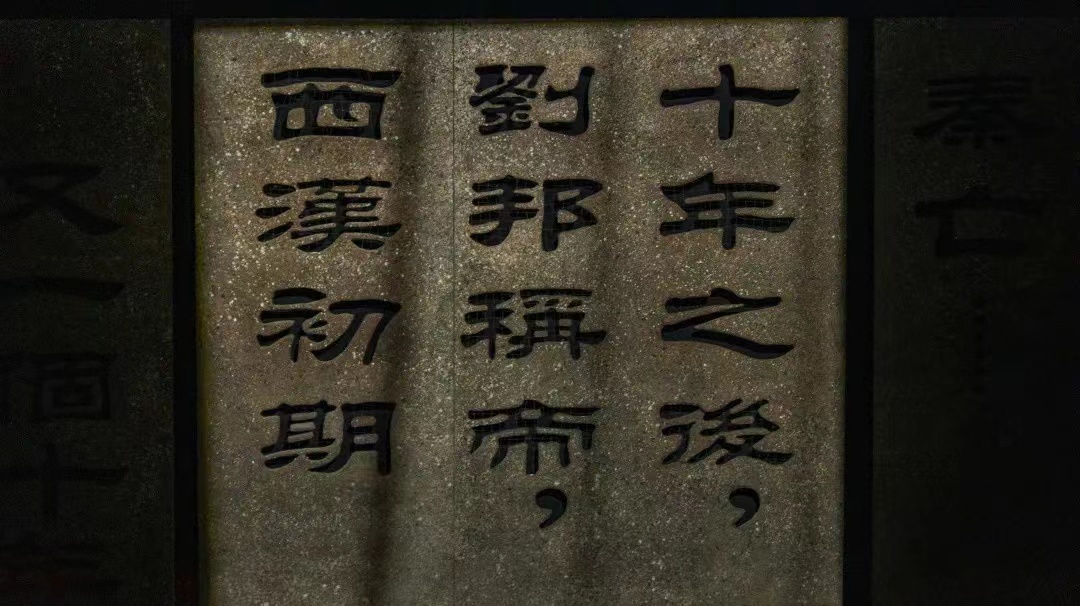 秦亡
十年之後，
劉邦稱帝，
西漢初期
又一個十